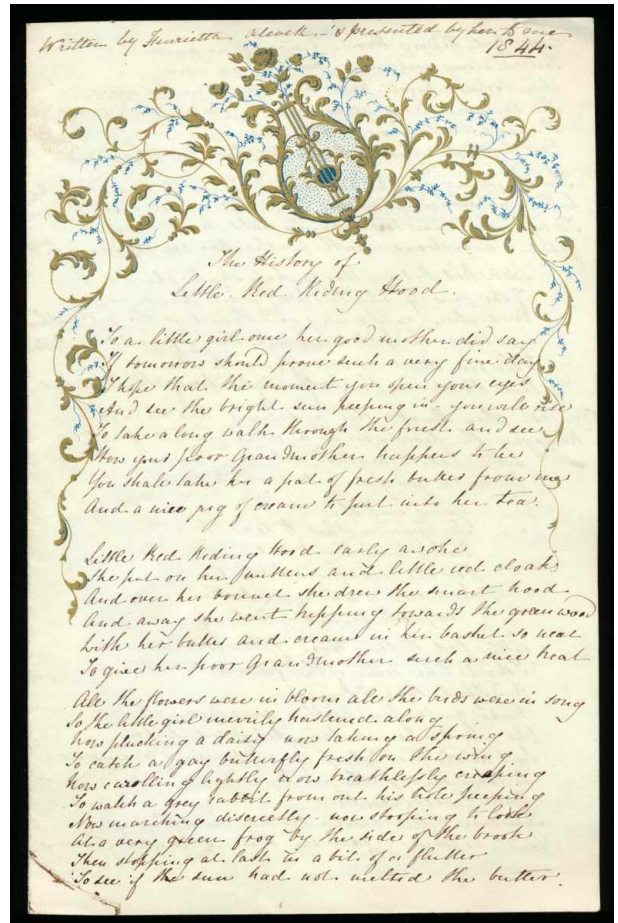 Written by Henrietta Alcock - & presented by her to me
1844.
The History of
Little Red Riding Hood.
To a little girl once her good mother did say
If tomorrow should prove such a very fine day
I hope that the moment you open your eyes
And see the bright sun peeping in - you will rise
To take a long walk through the forest and see
How your poor Grandmother happens to be
You shall take her a pat of fresh butter from me
And a nice pig of cream to put into her tea.
Little Red Riding Hood early awoke
She put on her mittens and little red cloak
And over her bonnet she drew the smart hood
And away she went tripping towards the green wood
With her butter and cream in her basket so neat
To give her poor Grandmother such a nice treat
All the flowers were in bloom all the birds were in song
So the little girl merrily hastened along
Now plucking a daisy now taking a spring
To catch a gay butterfly fresh on the wing
Now carolling lightly now breathlessly creeping
To watch a grey rabbit from out his hole peeping
Now marching discreetly - now stooping to look
At a very green frog by the side of the brook
Then stopping at last in a bit of a flutter
To see if the sun had not melted the butter.